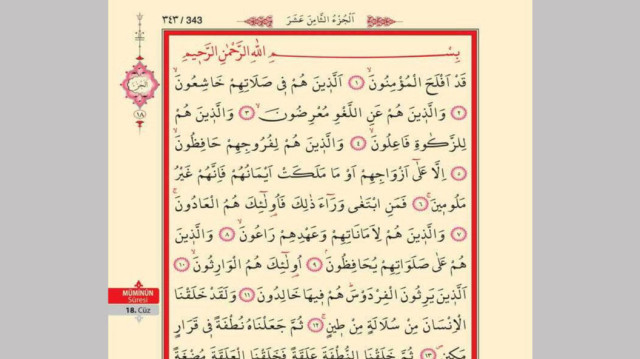 ٣٤٣ / 343
اَلْجُزْءُ الثَّامِنَ عَشَرَ
بِسْــمِ اللّٰهِ الرَّحْمٰنِ الرَّحِيمِ
قَدْ اَفْلَحَ الْمُؤْمِنُونَۙ ١ اَلَّذِينَ هُمْ فِي صَلَاتِهِمْ خَاشِعُونَۙ
٢ وَالَّذِينَ هُمْ عَنِ اللَّغْوِ مُعْرِضُونَۙ ٣ وَالَّذِينَ هُمْ
لِلزَّكٰوةِ فَاعِلُونَۙ ٤ وَالَّذِينَ هُمْ لِفُرُوجِهِمْ حَافِظُونَۙ
٥ اِلَّا عَلٰٓى اَزْوَاجِهِمْ اَوْ مَا مَلَكَتْ اَيْمَانُهُمْ فَاِنَّهُمْ غَيْرُ
مَلُومِينَۚ ٦ فَمَنِ ابْتَغٰى وَرَٓاءَ ذٰلِكَ فَاُو۬لٰٓئِكَ هُمُ الْعَادُونَۚ
٧ وَالَّذِينَ هُمْ لِاَمَانَاتِهِمْ وَعَهْدِهِمْ رَاعُونَۙ ٨ وَالَّذِينَ
هُمْ عَلٰى صَلَوَاتِهِمْ يُحَافِظُونَۢ ٩ اُو۬لٰٓئِكَ هُمُ الْوَارِثُونَۙ ١٠
اَلَّذِينَ يَرِثُونَ الْفِرْدَوْسَۜ هُمْ فِيهَا خَالِدُونَ ١١ وَلَقَدْ خَلَقْنَا
الْاِنْسَانَ مِنْ سُلَالَةٍ مِنْ طِينٍۚ ١٢ ثُمَّ جَعَلْنَاهُ نُطْفَةً فِي قَرَارٍ
مَكِينٍۖ ١٣ ثُمَّ خَلَقْنَا النُّطْفَةَ عَلَقَةً فَخَلَقْنَا الْعَلَقَةَ مُضْغَةً
١٨
MÜMİNÛN
Sûresi
18. Cüz